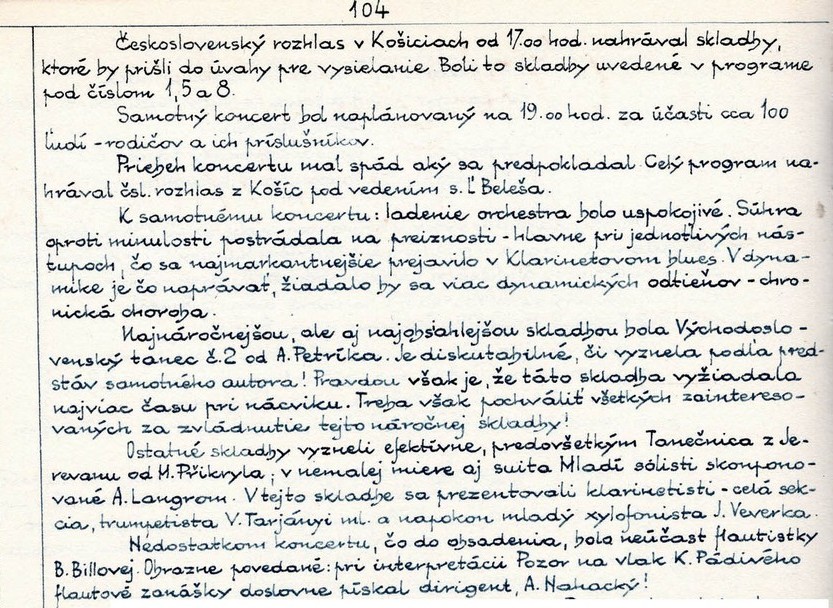 104
Československý rozhlas v Košiciach od 17.00 hod. nahrával skladby,
ktoré by prišli do úvahy pre vysielanie. Boli to skladby uvedené v programe
pod číslom 1,5 a 8.
Samotný koncert bol naplánovaný na 19.00 hod. za účasti cca 100
ľudí - rodičov a ich príslušníkov.
Priebeh koncertu mal spád aký sa predpokladal. Celý program na-
hrával čsl. rozhlas z Košíc pod vedením s. Ľ Beleša.
K samotnému koncertu: ladenie orchestra bolo uspokojivé. Súhra
oproti minulosti postrádala na preiznosti - hlavne pri jednotlivých nás-
tupoch, čo sa najmarkantnejšie prejavilo v Klarinetovom blues. V dyna-
mike je čo naprávať, žiadalo by sa viac dynamických odtieňov - chro-
nická choroba.
Najnáročnejšou, ale aj najobsiahlejšou skladbou bola Východoslo-
venský tanec č.2 od A. Petríka. Je diskutabilné, či vyznela podľa pred-
stáv samotného autora! Pravdou však je, že táto skladba vyžiadala
najviac času pri nácviku. Treba však pochváliť všetkých zaintereso-
vaných za zvládnutie tejto náročnej skladby!
Ostatné skladby vyzneli efektívne, predovšetkým Tanečnica z Je-
revanu od H. Přikryla, v nemalej miere aj suita Mladí sólisti skompono-
vané A. Langrom. V tejto skladbe sa prezentovali klarinetisti - celá sek-
cia, trumpetista V. Tarjányi ml. a napokon mladý xylofonista J. Veverka.
Nedostatkom koncertu, čo do obsadenia, bola neúčasť flautistky
B. Billovej. Obrazne povedané: pri interpretácii Pozor na vlak K. Pádivého
flautové zanášky doslovne pískal dirigent, A. Nahacký!